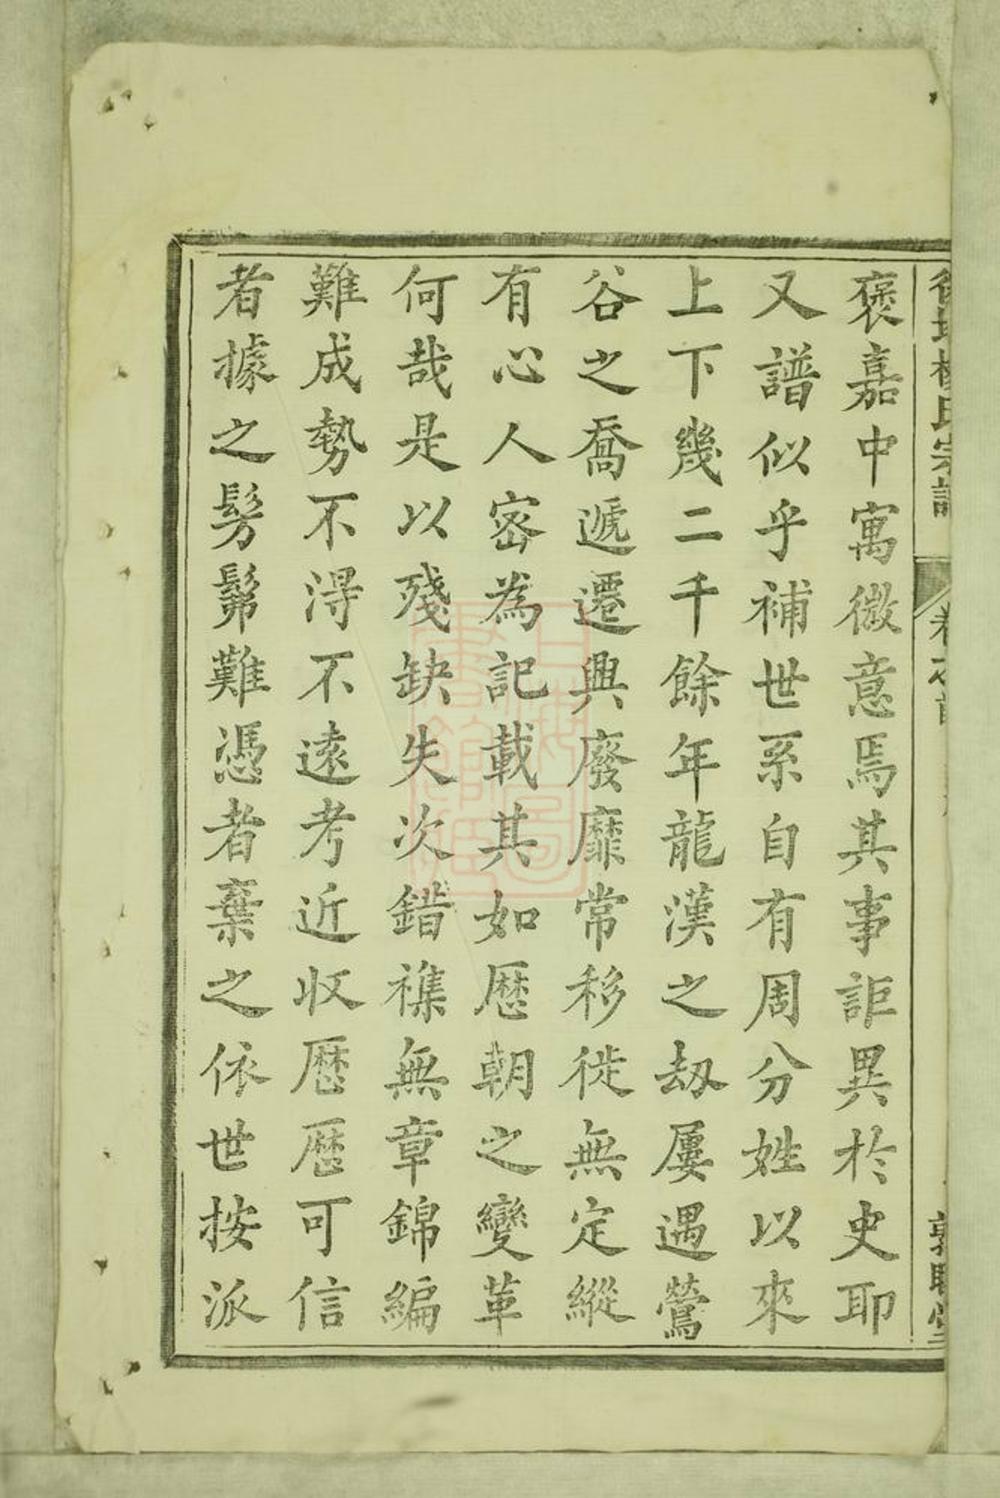 褒嘉中寓微意焉其事詎異於史耶
又譜似乎補世系自有周分姓以來
上下幾二千餘年龍漢之刼屢遇鶯
谷之喬遞遷興廢靡常移徙無定縱
有心人密為記載其如歷朝之變革
何哉是以殘缺失次錯襍無章錦編
難成勢不淂不遠考近收歷歷可信
者據之髣髴難憑者棄之依世按派